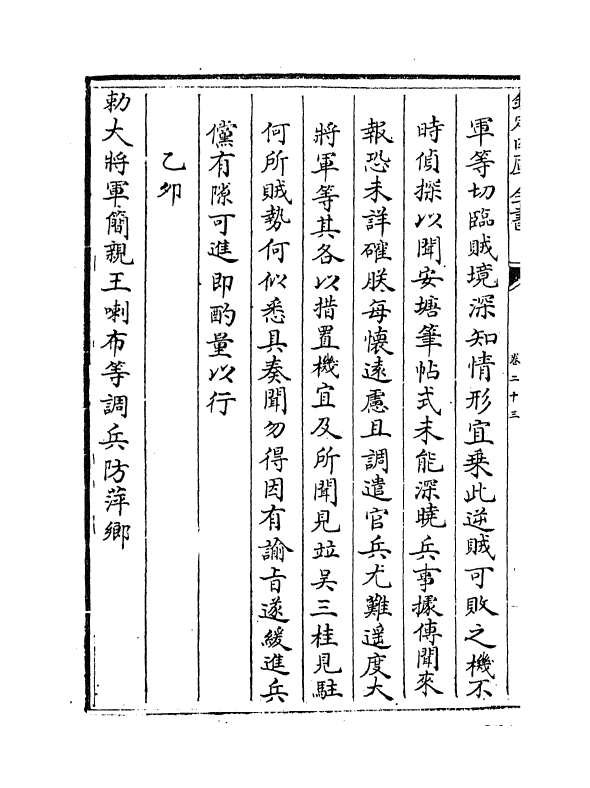 卷二十三
軍等切臨賊境深知情形宜乗此逆賊可敗之機不
時偵探以聞安塘筆帖式未能深曉兵事據傳聞來
報恐未詳確朕每懷遠慮且調遣官兵尤難遥度大
將軍等其各以措置機宜及所聞見並吳三桂見駐
何所賊勢何似悉具奏聞勿得因有諭㫖遂緩進兵
儻有隙可進即酌量以行
乙卯
勅大將軍簡親王喇布等調兵防萍鄉